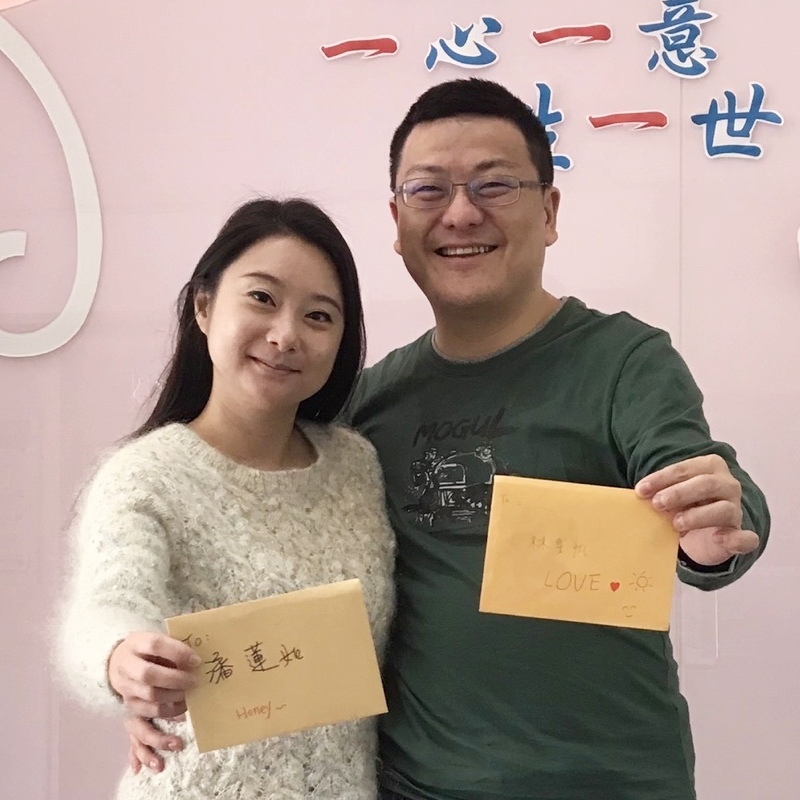 一心一意
一世
MOGUL
To:
潘蓮妃
Honey~
LOVE